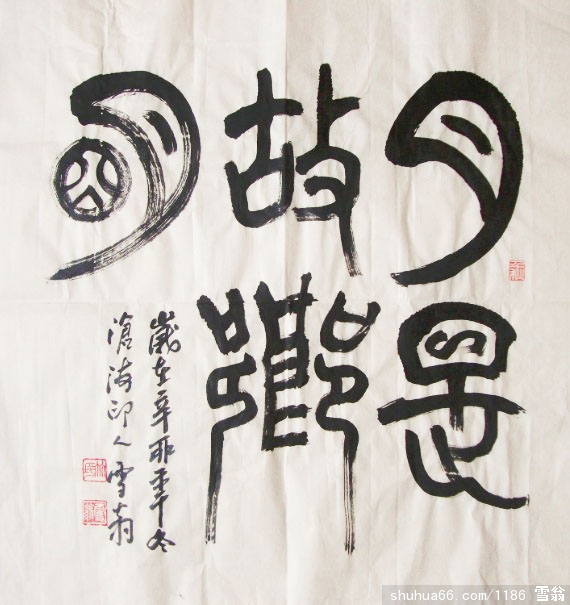 月是
故鄉
明
歲在辛卯年冬
滄海印人雪翁
shuhua66.com/1186 雪翁